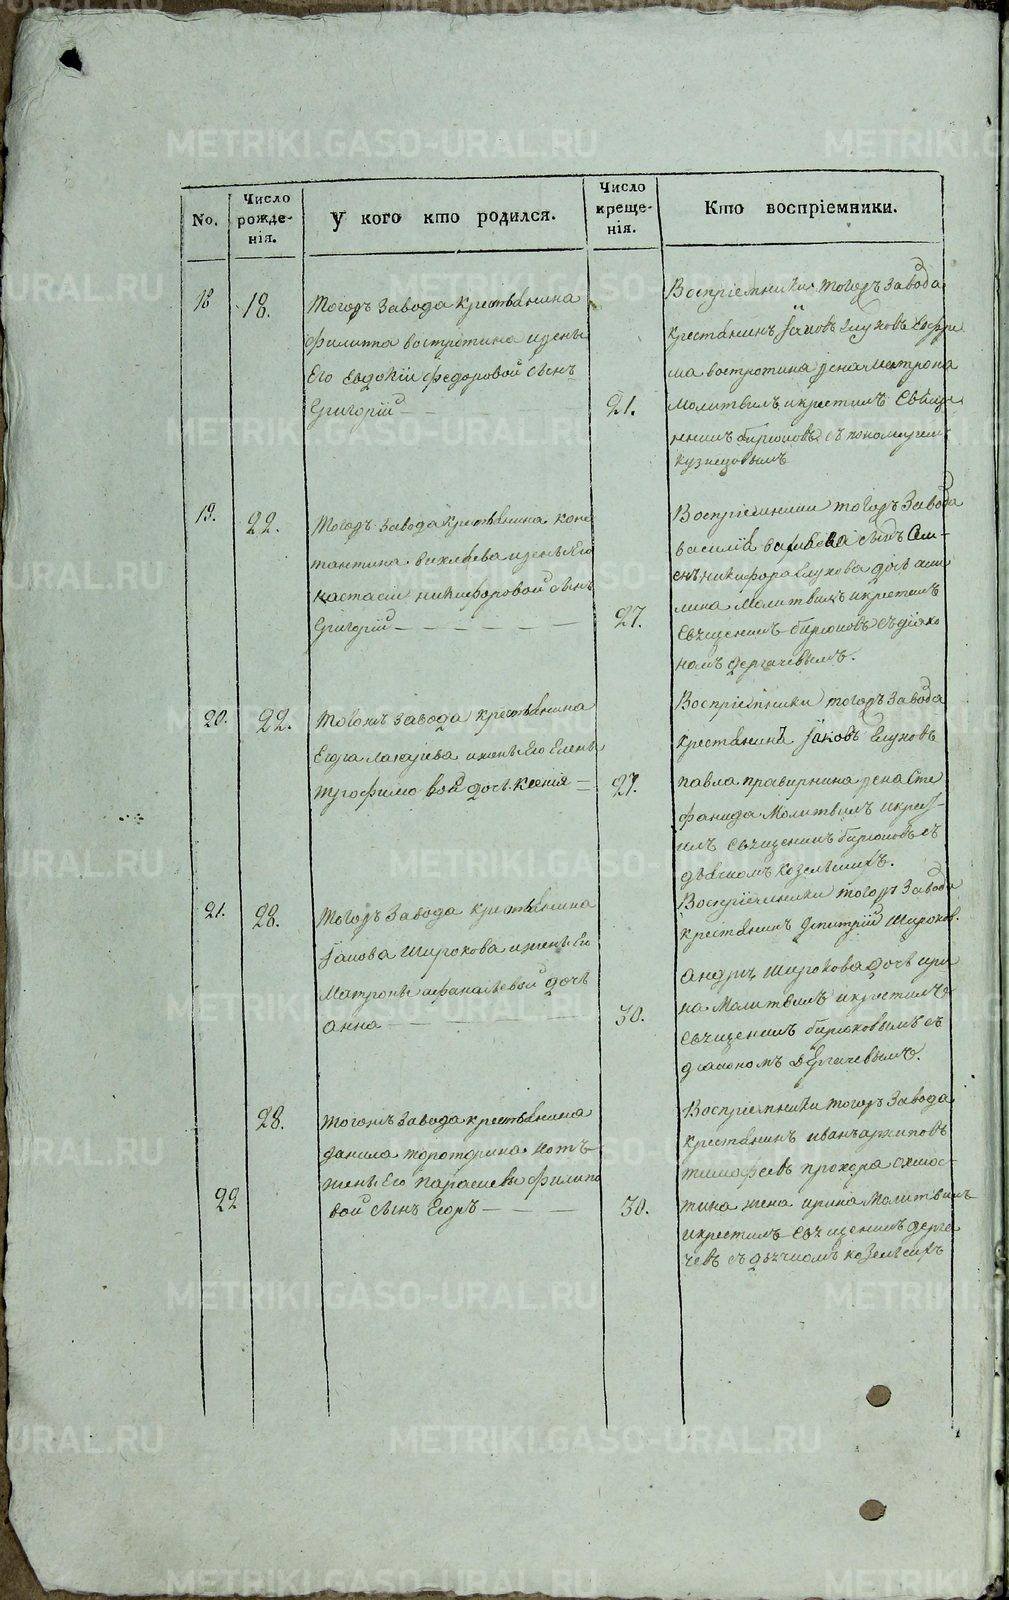 METRIKI.GASO-URAL.RU
No.
Число рожде-нія.
У кого кто родился.
Число креще-нія.
Кто воспріемники.
18
18.
Тогожъ завода крестьянина
Филиппа востротина и жены
Его Евдокіи Федоровой сынъ
Григорій
21.
Воспріемники тогожъ завода
крестьянинъ Іаковъ Глуховъ
востротина жена Матрона
Молитвилъ и крестилъ Священ
никъ бирюковъ съ пономаремъ
кузнецовымъ
19.
22.
Тогожъ завода крестьянина конс
тантина вихляева и жены Его
настасіи никифоровой сынъ
Григорій
27.
Воспріемники тогожъ завода
василія сынъ Сем-
енъ никифора Глухова дочь аки
лина Молитвилъ и крестилъ
Священникъ бирюковъ съ діако
номъ дергачевымъ.
20.
22.
Тогожъ завода крестьянина
и жены Его Елены
трофимовой дочь Ксенія
27.
Воспріемники тогожъ завода
крестьянинъ Іаковъ Глуховъ
павла жена Сте
фанида Молитвилъ и крест-
илъ Священникъ бирюковъ съ
дьячкомъ козельскихъ.
21.
28.
Тогожъ завода крестьянина
Іакова Широкова и жены Его
Матроны афанасьевой дочь
анна
30.
Воспріемники тогожъ завода
крестьянинъ Дмитрій Широков.
андрея Широкова дочь ири
на Молитвилъ и крестилъ
Священникъ бирюковымъ съ
діакономъ дергачевымъ.
22
28.
Тогожъ завода крестьянина
данила
жены Его парасковьи филипо
вой сынъ Егоръ
30.
Воспріемники тогожъ завода
крестьянинъ иванъ архиповъ
тимофеевъ прохора
тина жена ирина Молитвилъ
и крестилъ Священникъ дерга
чевъ съ дьячкомъ козельскихъ